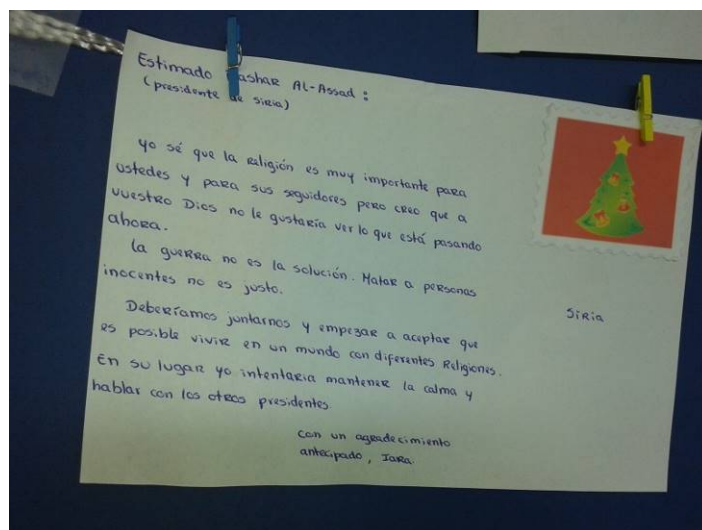 Estimado Bashar Al-Assad :
(presidente de Siria)
Yo sé que la religión es muy importante para
ustedes y para sus seguidores pero creo que a
vuestro Dios no le gustaría ver lo que está pasando
ahora.
La guerra no es la solución. Matar a personas
inocentes no es justo.
Siria
Deberíamos juntarnos y empezar a aceptar que
es posible vivir en un mundo con diferentes Religiones.
En su lugar yo intentaria mantener la calma y
hablar con los otros presidentes.
Con un agradecimiento
antecipado, Iara.